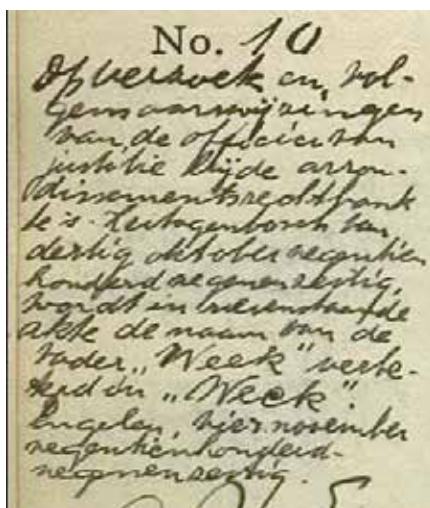 No. 10
Op verzoek en vol-
gens aanwijzingen
van de officier van
justitie bij de arron-
dissementsrechtbank
te 's-Hertogenbosch van
dertig oktober negentien
honderd negenenzestig,
wordt in nevenstaande
akte de naam van de
vader "Week" verbe-
terd in "Weck".
Engelen, vier november
negentienhonderd-
negenenzestig.